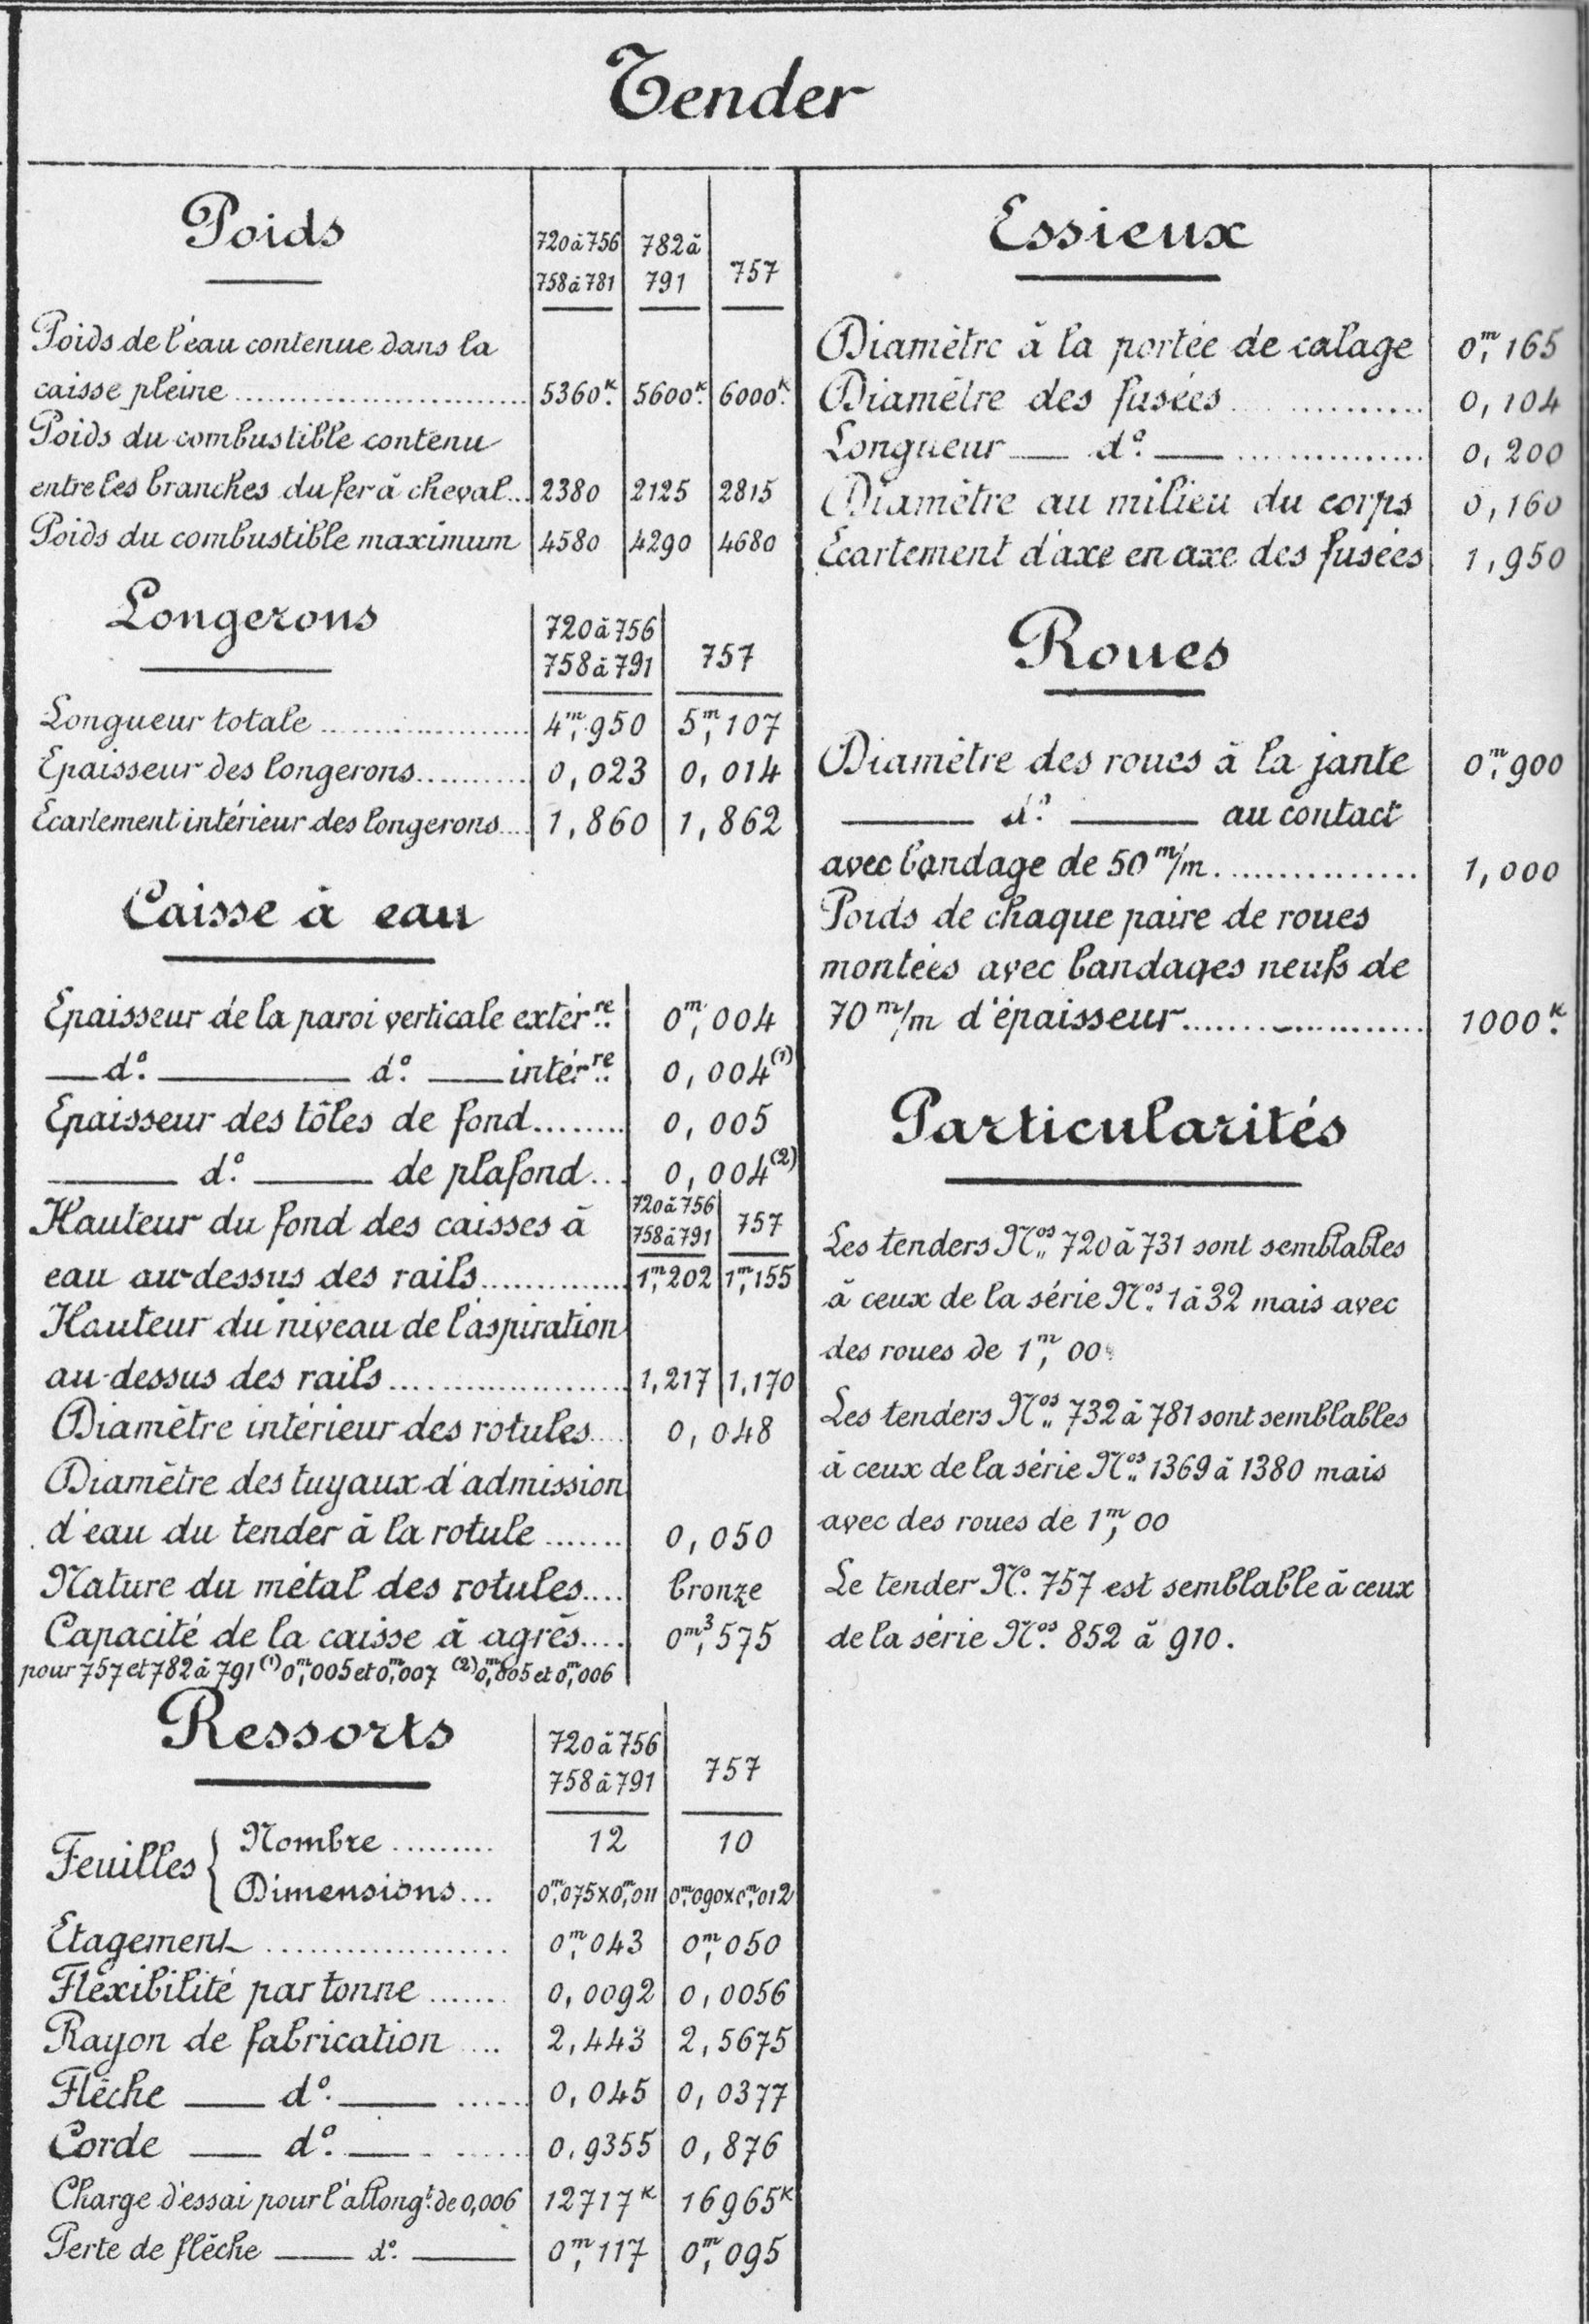 Tender
Poids
720 à 756
758 à 781
782 à
791
757
Poids de l'eau contenue dans la
caisse pleine .......................... 5360k. 5600k. 6000k.
Poids du combustible contenu
entre les branches du fer à cheval... 2380 2125 2815
Poids du combustible maximum 4580 4290 4680
Longerons
720 à 756
758 à 791
757
Longueur totale .................... 4m,950 5m,107
Epaisseur des longerons.......... 0,023 0,014
Ecartement intérieur des longerons.... 1,860 1,862
Caisse à eau
Epaisseur de la paroi verticale extérre. 0m,004
— do. — do. — intérre. 0,004(1)
Epaisseur des tôles de fond........ 0,005
— do. — de plafond... 0,004(2)
720 à 756
758 à 791
757
Hauteur du fond des caisses à
eau au-dessus des rails............. 1m,202 1m,155
Hauteur du niveau de l'aspiration
au-dessus des rails ..................... 1,217 1,170
Diamètre intérieur des rotules.... 0,048
Diamètre des tuyaux d'admission
d'eau du tender à la rotule ....... 0,050
Nature du métal des rotules.... bronze
Capacité de la caisse à agrès.... 0m3,575
pour 757 et 782 à 791 (1) 0m,005 et 0m,007 (2) 0m,005 et 0m,006
Ressorts
720 à 756
758 à 791
757
Feuilles { Nombre .......... 12 10
Dimensions... 0m,075x0m,011 0m,090x0m,012
Etagement .................... 0m,043 0m,050
Fléxibilité par tonne ....... 0,0092 0,0056
Rayon de fabrication .... 2,443 2,5675
Flêche — do. — ...... 0,045 0,0377
Corde — do. — ...... 0,9355 0,876
Charge d'essai pour l'allongt. de 0,006 12717k 16965k
Perte de flêche — do. — 0m,117 0m,095
Essieux
Diamètre à la portée de calage 0m,165
Diamètre des fusées .............. 0,104
Longueur — do. — ................ 0,200
Diamètre au milieu du corps 0,160
Ecartement d'axe en axe des fusées 1,950
Roues
Diamètre des roues à la jante 0m,900
— do. — au contact
avec bandage de 50 m/m................ 1,000
Poids de chaque paire de roues
montées avec bandages neufs de
70 m/m d'épaisseur.................... 1000k.
Particularités
Les tenders Nos. 720 à 731 sont semblables
à ceux de la série Nos. 1 à 32 mais avec
des roues de 1m,00
Les tenders Nos. 732 à 781 sont semblables
à ceux de la série Nos. 1369 à 1380 mais
avec des roues de 1m,00
Le tender No. 757 est semblable à ceux
de la série Nos. 852 à 910.